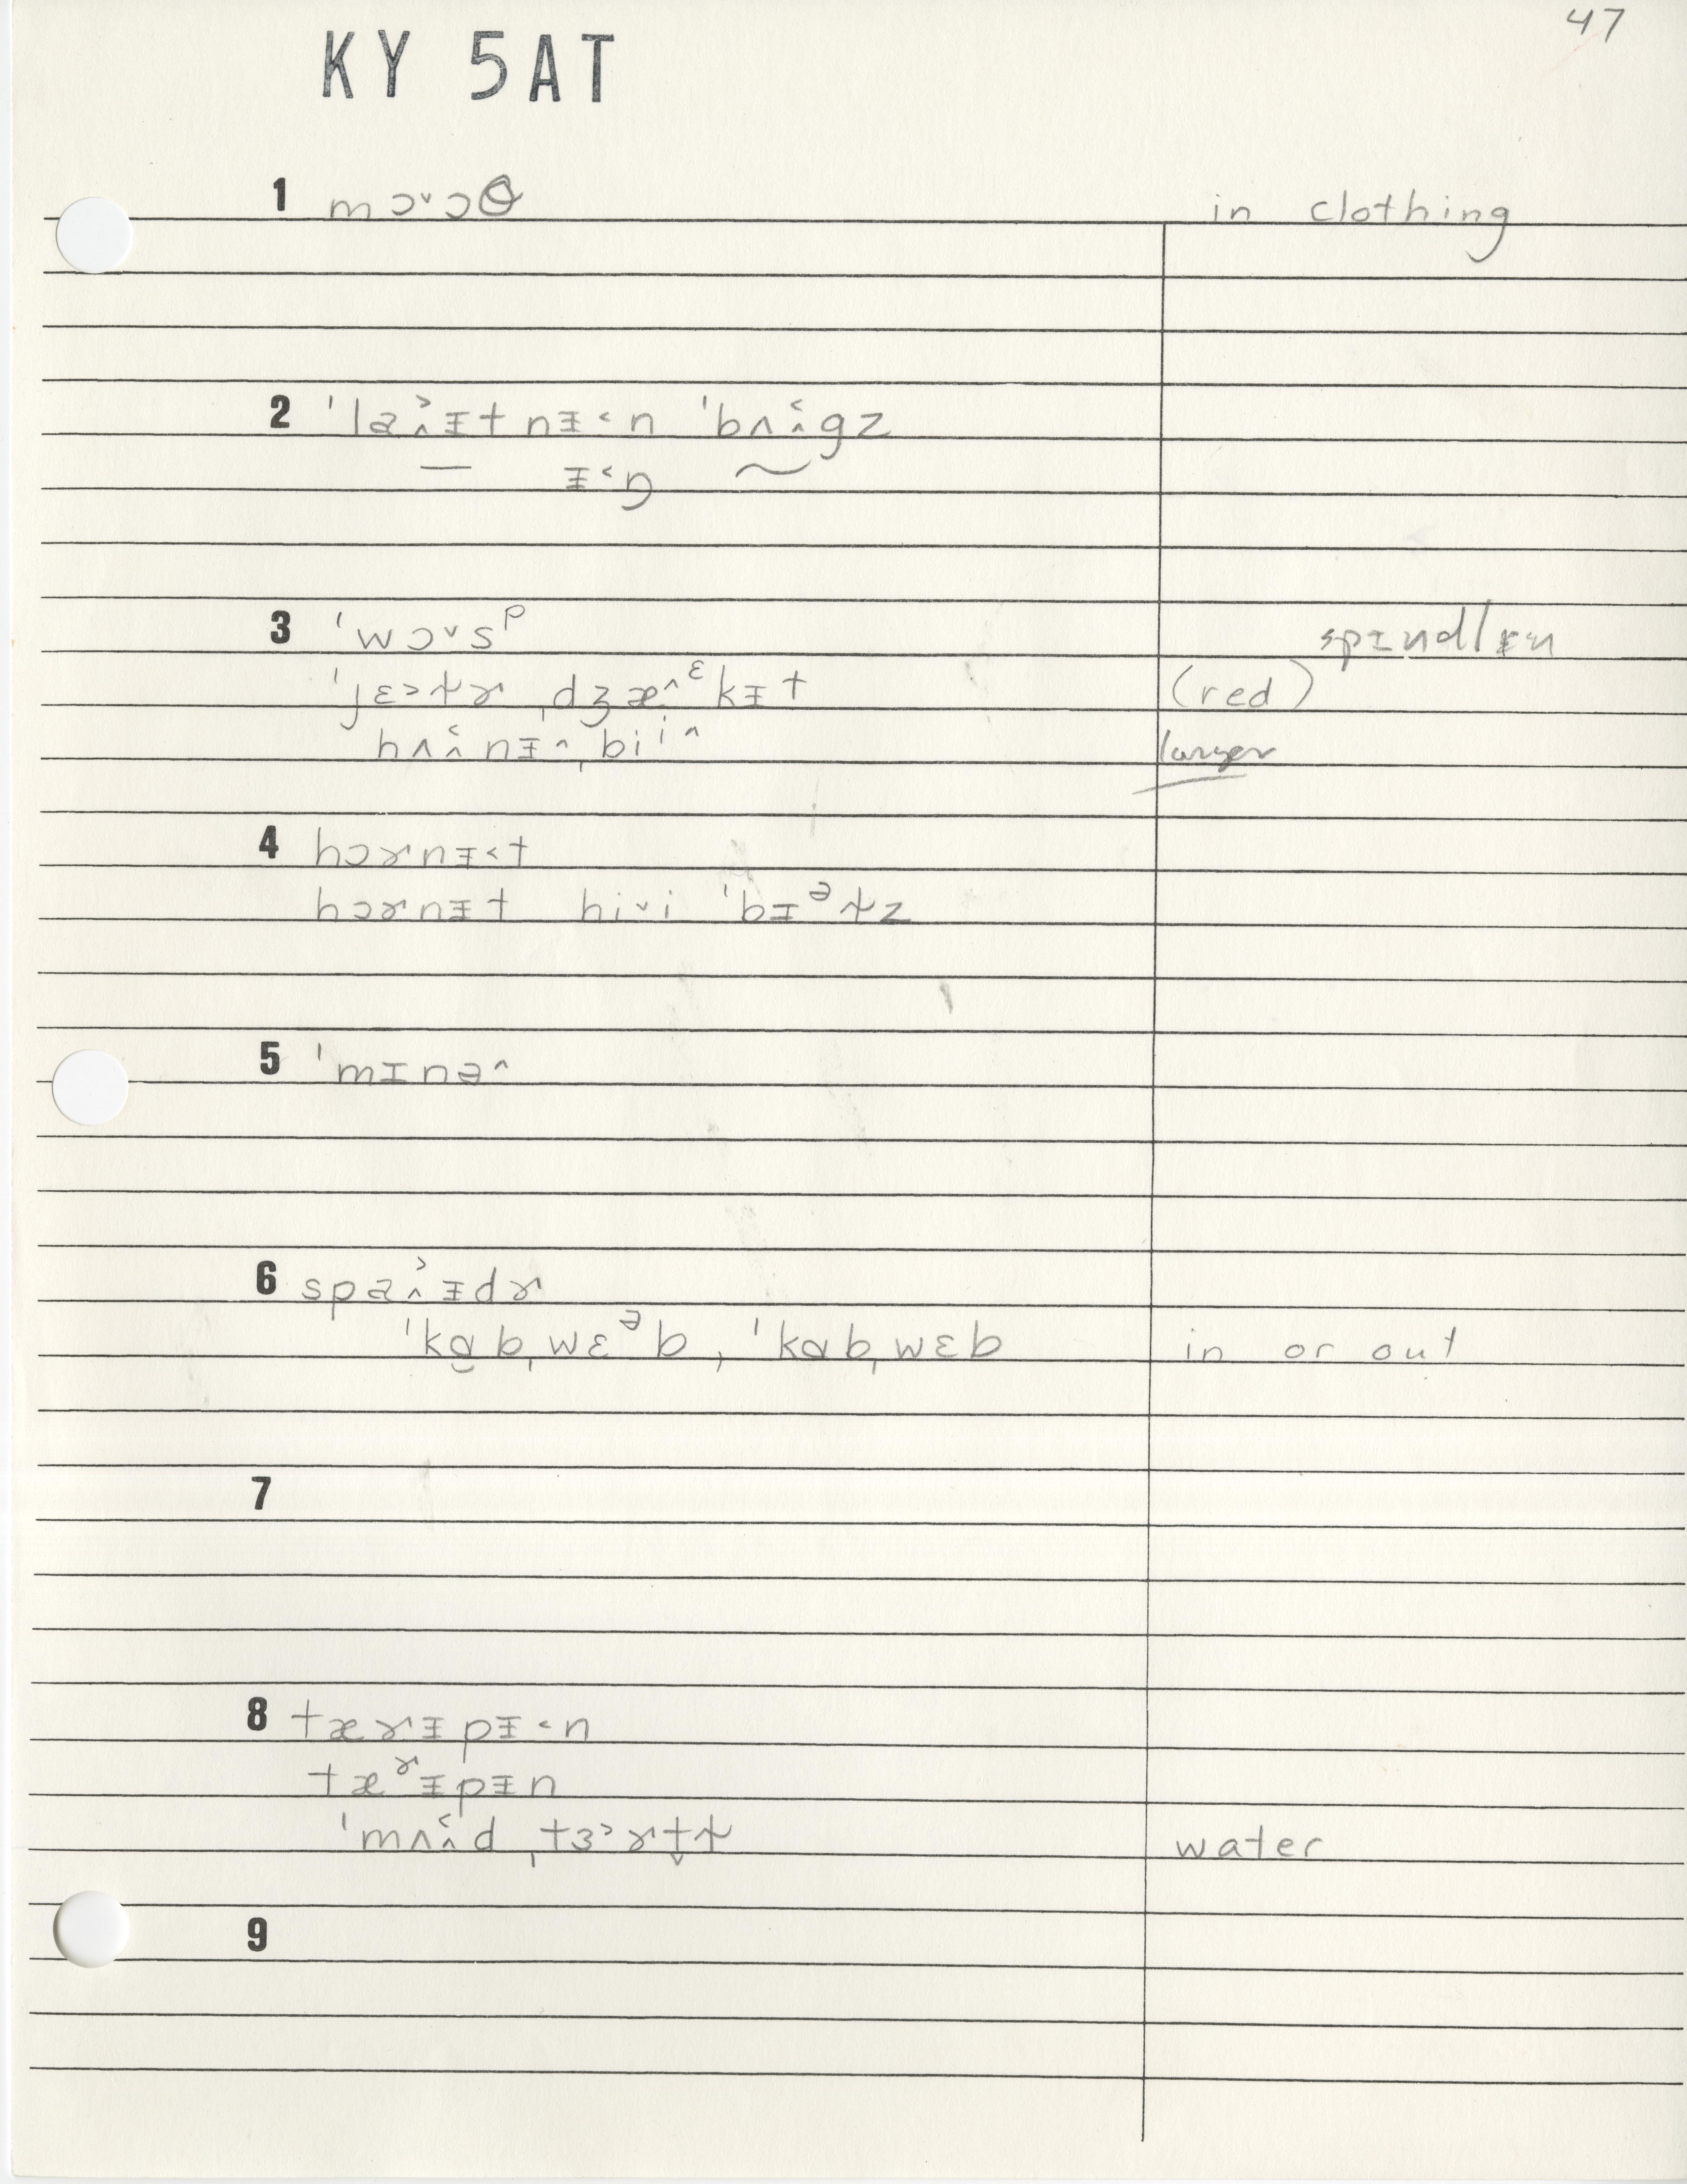 47
KY 5AT
1 mɔ˅ɔθ in clothing
2 ˈlaʌ̂˃ᵻt nᵻ˂n ˈbʌʌ̂˂gz
ᵻ˂ŋ
3 ˈwɔ˅sᵖ
ˈjɛ˃ɫɚ ˌdʒæ˄ᵋkᵻt (red)
hʌʌ̂˂nᵻ˄ˌbiⁱ˄ larger
4 hɔɚnᵻ˂t
hɔɚnᵻt hi˅i ˈbɪᵊɫz
5 ˈmɪnə˄
6 spaʌ̂˃ᵻdɚ
ˈkɑ̮bˌwɛᵊb, ˈkɑbˌwɛb in or out
7
8 tæɚᵻpᵻ˂n
tæᵊ˞ᵻpᵻn
ˈmʌʌ̂˂d ˌtɜ˃ɚt̬ɫ water
9